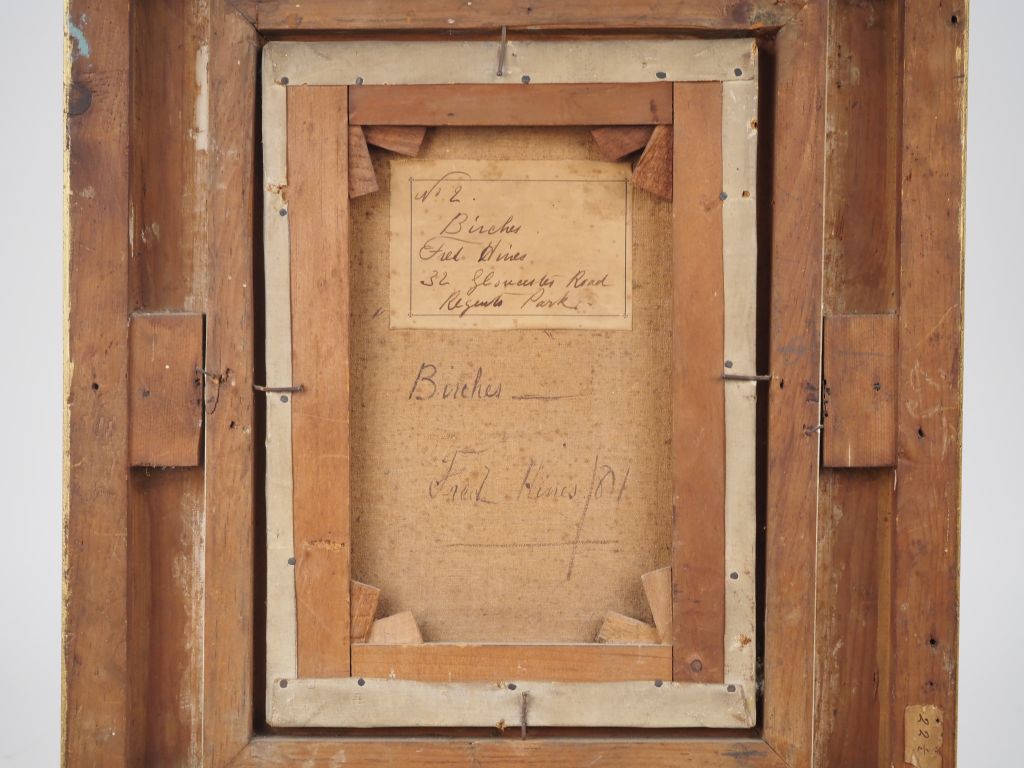 No 2.
Birches.
Fred Hines.
32 Gloucester Road
Regents Park.
Birches
Fred Hines / 81
22½